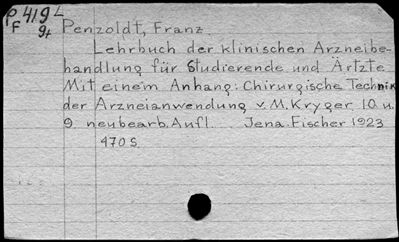 P 419 L
F 9t
Penzoldt, Franz
Lehrbuch der klinischen Arzneibe-
handlung für Studierende und Ärtzte
Mit einem Anhang: Chirurgische Technik
der Arzneianwendung v. M. Kryger 10. u.
9 neubearb. Aufl. Jena. Fischer 1923
470 S.